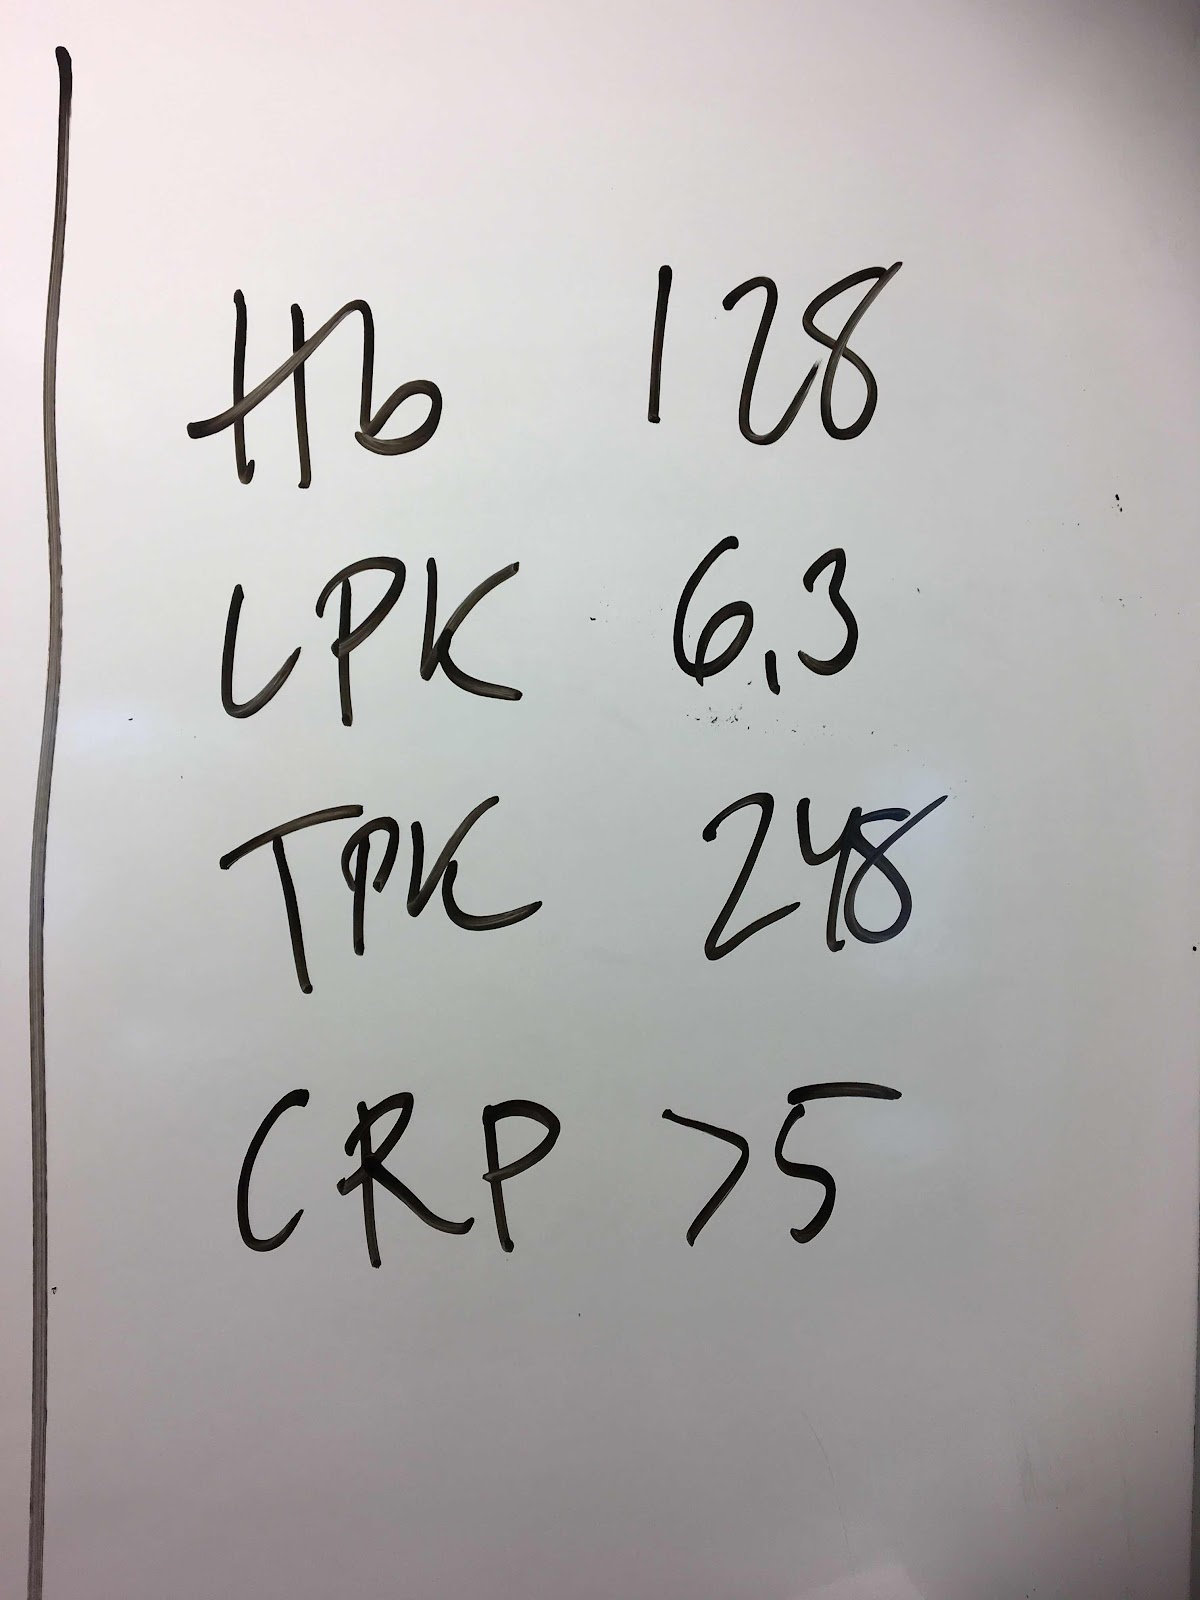 Hb 128
LPK 6,3
TPK 248
CRP >5